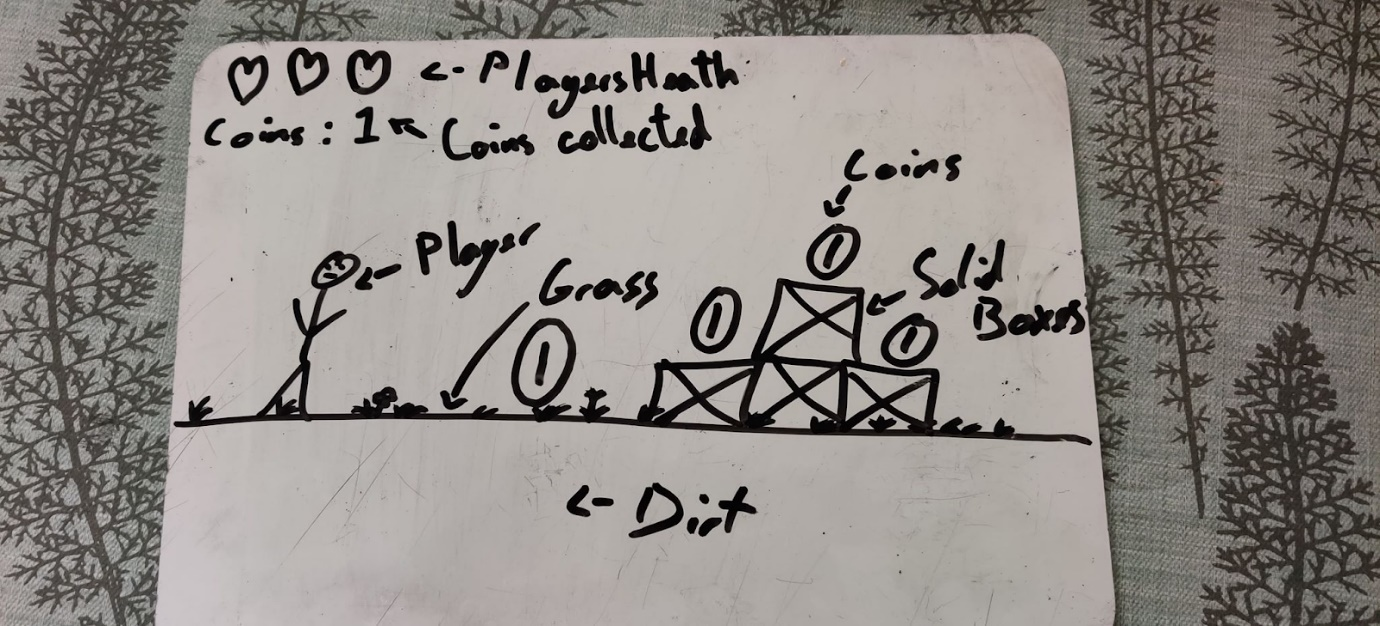 <- Players Heath
Coins: 1 <- Coins collected
Coins
Player
Grass
1
1
1
1
Solid
Boxes
<- Dirt